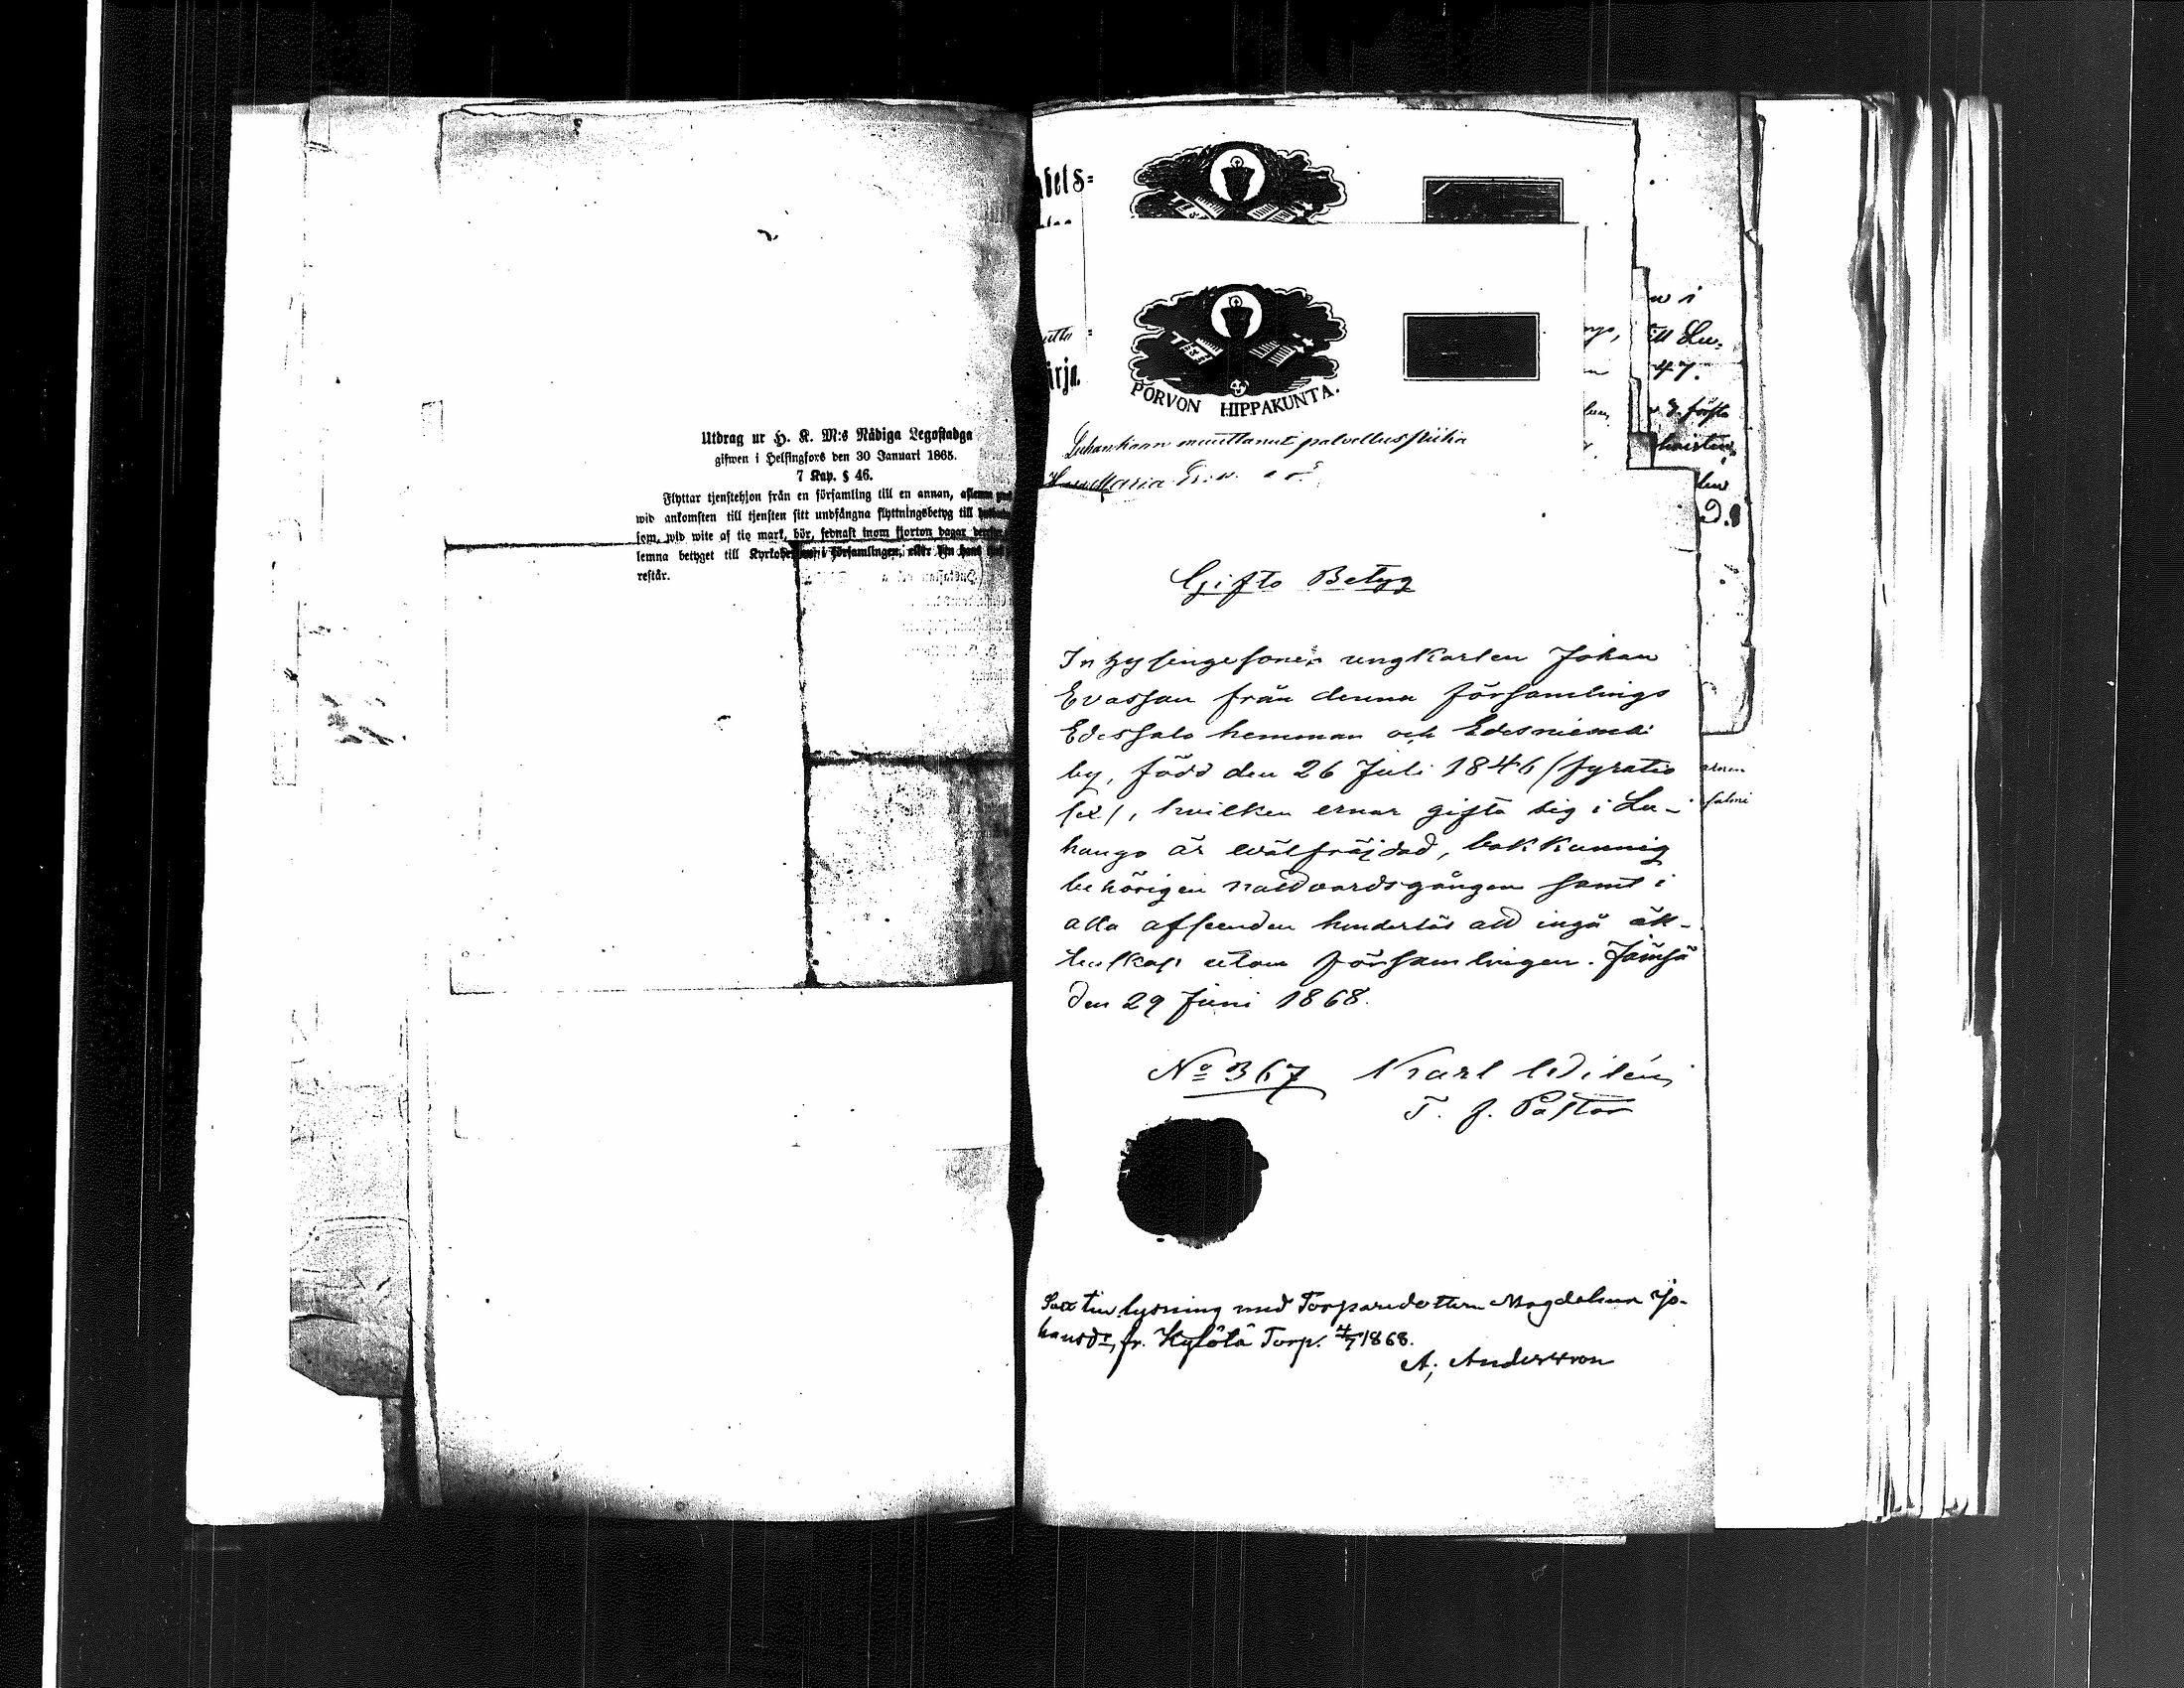 Utdrag ur H. K. M:s Nådiga Legostadga
gifwen i Helsingfors den 30 Januari 1865.
7 Kap. § 46.
Flyttar tjenstehjon från en församling till en annan, aflemne
wid ankomsten till tjensten sitt undfångna flyttningsbetyg till
som, wid wite af tio mark, bör, sednast inom fjorton dagar
lemna betyget till i församlingen, eller
restår.
PORVON HIPPAKUNTA.
Luhankaan muuttanut palvellusflikka
Maria
Gifto Betyg
Inhysingesonen ungkarlen Johan
Evasson från denna församlings
Edessalo hemman och Edesniemi
by, född den 26 Juli 1846 (fyratio
sex), hvilken ernar gifta sig i Lu-
hango är wälfräjdad, bokkunnig
behörigen nattvardsgången samt i
alla afseenden hinderlös att ingå äk-
tenskap utom församlingen. Jämsä
den 29 Juni 1868.
No 367 Karl Widén
T. f. Pastor
till lysning med Torparedottern Magdalena Jo-
hansdr, fr. Kylötä Torp. 4/7 1868.
A; Andersson